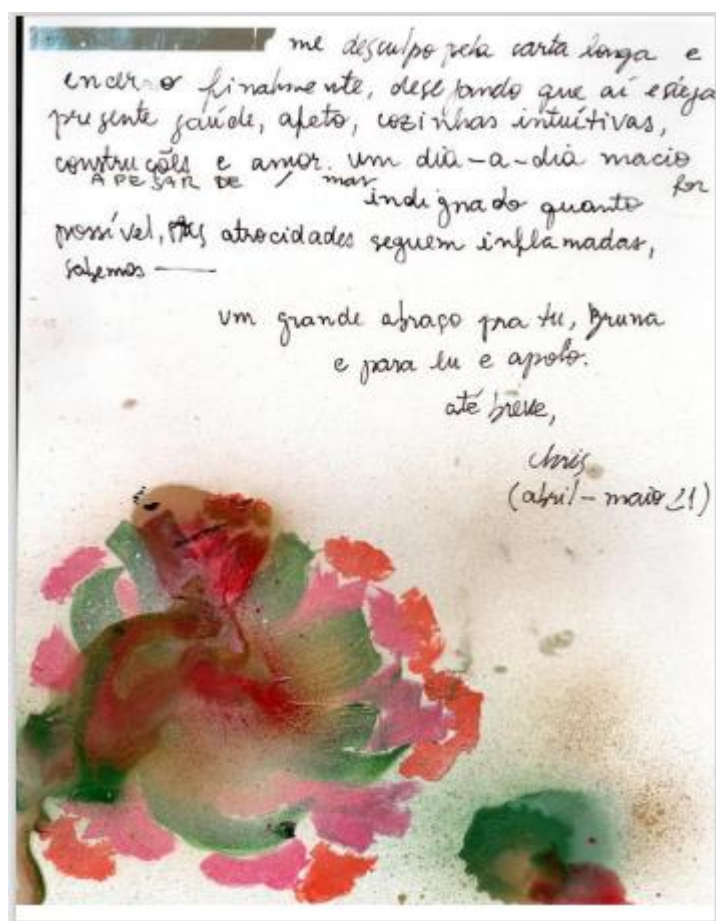 me desculpo pela carta longa e
encerro finalmente, desejando que aí esteja
presente saúde, afeto, cozinhas intuitivas,
construções e amor. um dia-a-dia macio
APESAR DE / mas
indignado quanto for
possível, as atrocidades seguem inflamadas,
sabemos —
um grande abraço pra tu, Bruna
e para lu e apolo.
até breve,
chris
(abril - maio 21)